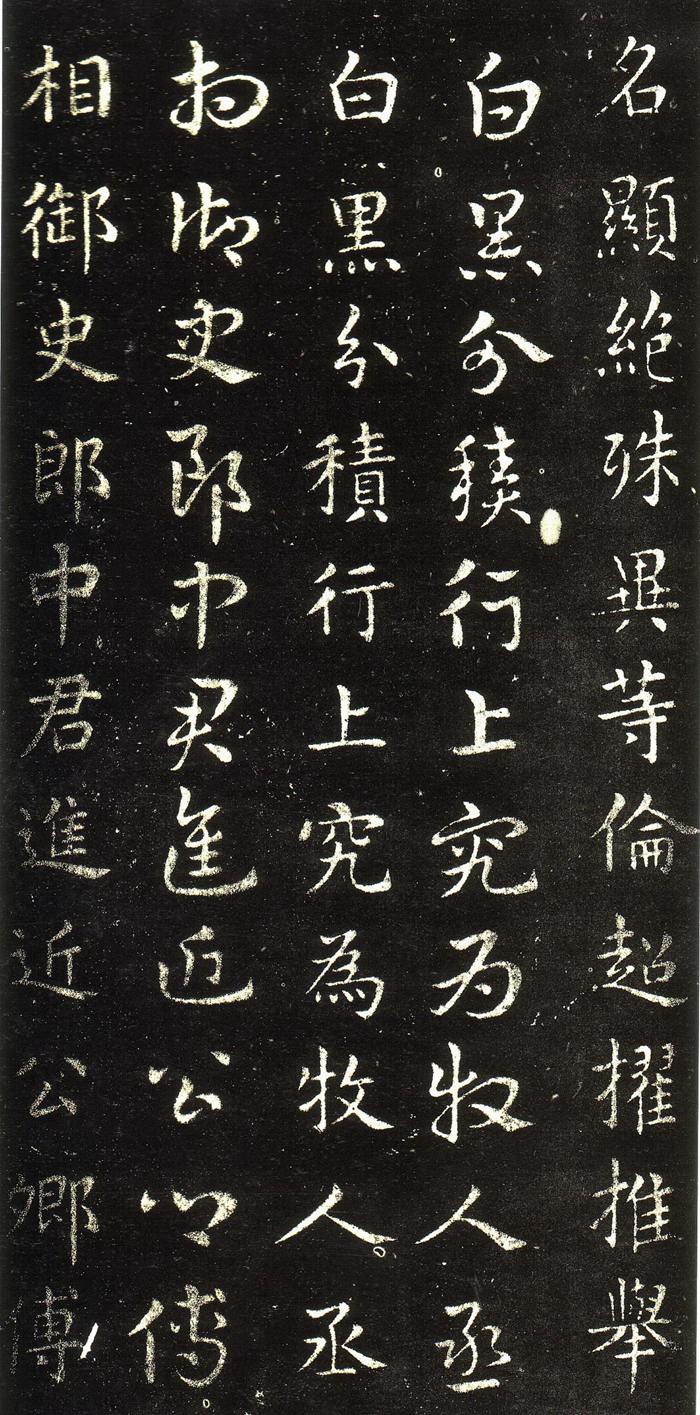 名顯絶殊異等倫超擢推舉
白黑分積行上究為牧人丞
白黑分積行上究為牧人丞
相御史郎中君進近公卿傅
相御史郎中君進近公卿傅